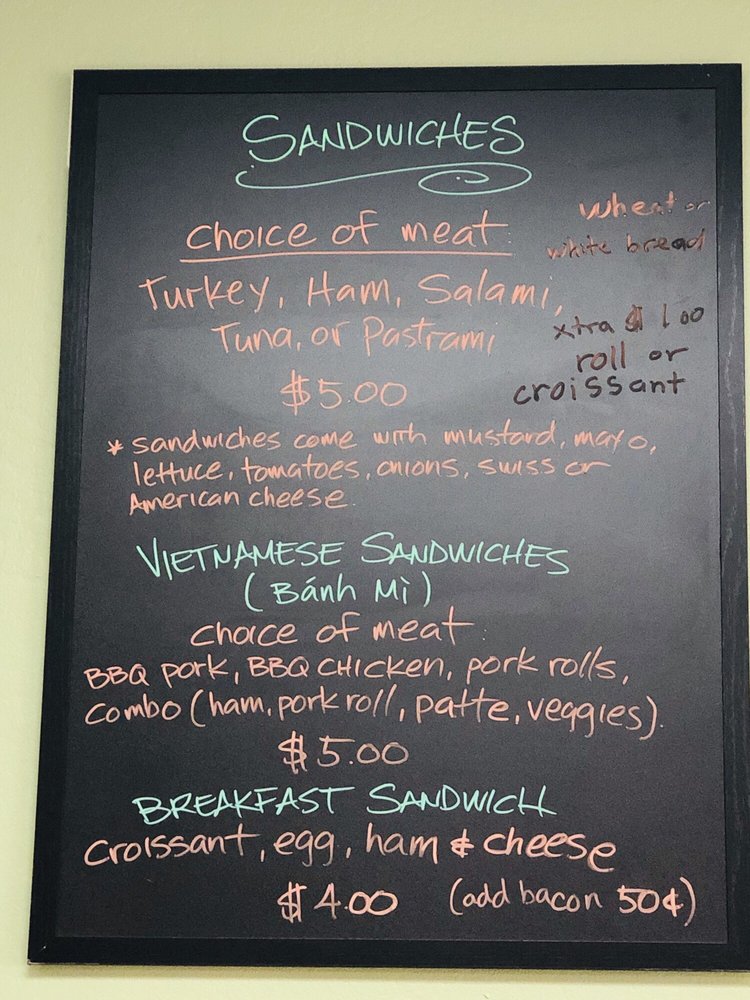 SANDWICHES
choice of meat:
Turkey, Ham, Salami,
Tuna, or Pastrami
$5.00
wheat or
white bread
xtra $1.00
roll or
croissant
* sandwiches come with mustard, mayo,
lettuce, tomatoes, onions, swiss or
American cheese.
VIETNAMESE SANDWICHES
(Bánh Mì)
choice of meat:
BBQ pork, BBQ CHICKEN, pork rolls,
combo (ham, pork roll, patte, veggies).
$5.00
BREAKFAST SANDWICH
croissant, egg, ham & cheese
$4.00 (add bacon 50¢)